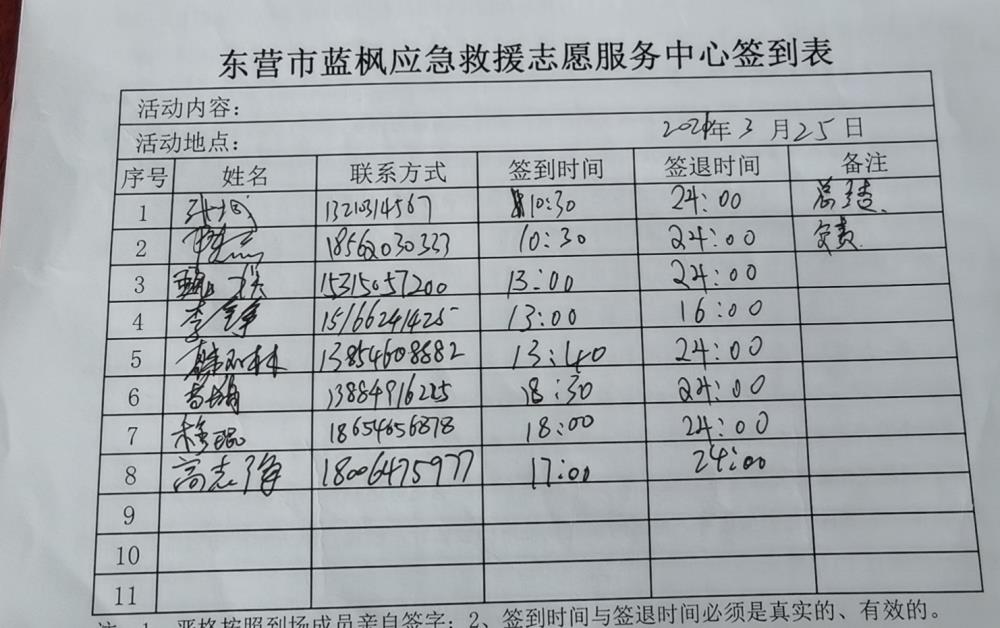 东营市蓝枫应急救援志愿服务中心签到表
活动内容:
活动地点: 2024年3月25日
序号 姓名 联系方式 签到时间 签退时间 备注
1 13210314567 10:30 24:00
2 18562030333 10:30 24:00
3 15315057200 13:00 24:00
4 李 15166241425 13:00 16:00
5 林 13854608882 13:40 24:00
6 13884916225 18:30 24:00
7 18654656878 18:00 24:00
8 高志 18006475977 17:00 24:00
9
10
11
1、严格按照到场成员亲自签字;2、签到时间与签退时间必须是真实的、有效的。